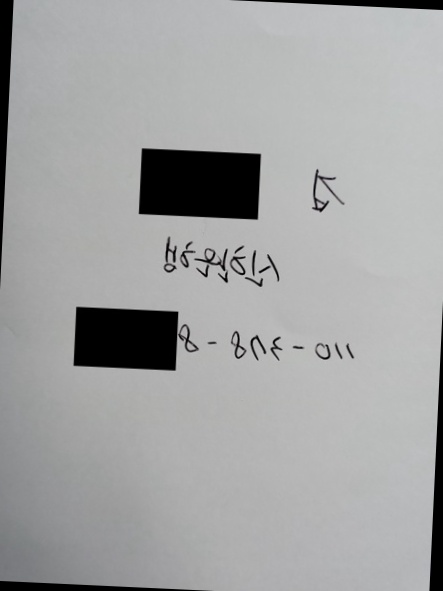 신한은행
110-378-8